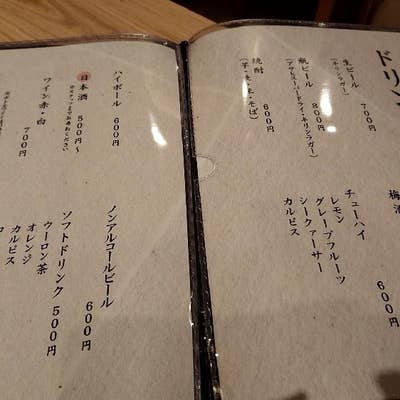 ドリン
生ビール 700円
(キリンラガー)
瓶ビール 800円
(アサヒスーパードライ・キリンラガー)
焼酎 600円
(芋・麦・米・そば)
梅酒
チューハイ 600円
レモン
グレープフルーツ
シークァーサー
カルピス
ハイボール 600円
日本酒 500円~
ワイン 赤・白 700円
ノンアルコールビール 600円
ソフトドリンク 500円
ウーロン茶
オレンジ
カルピス
コ